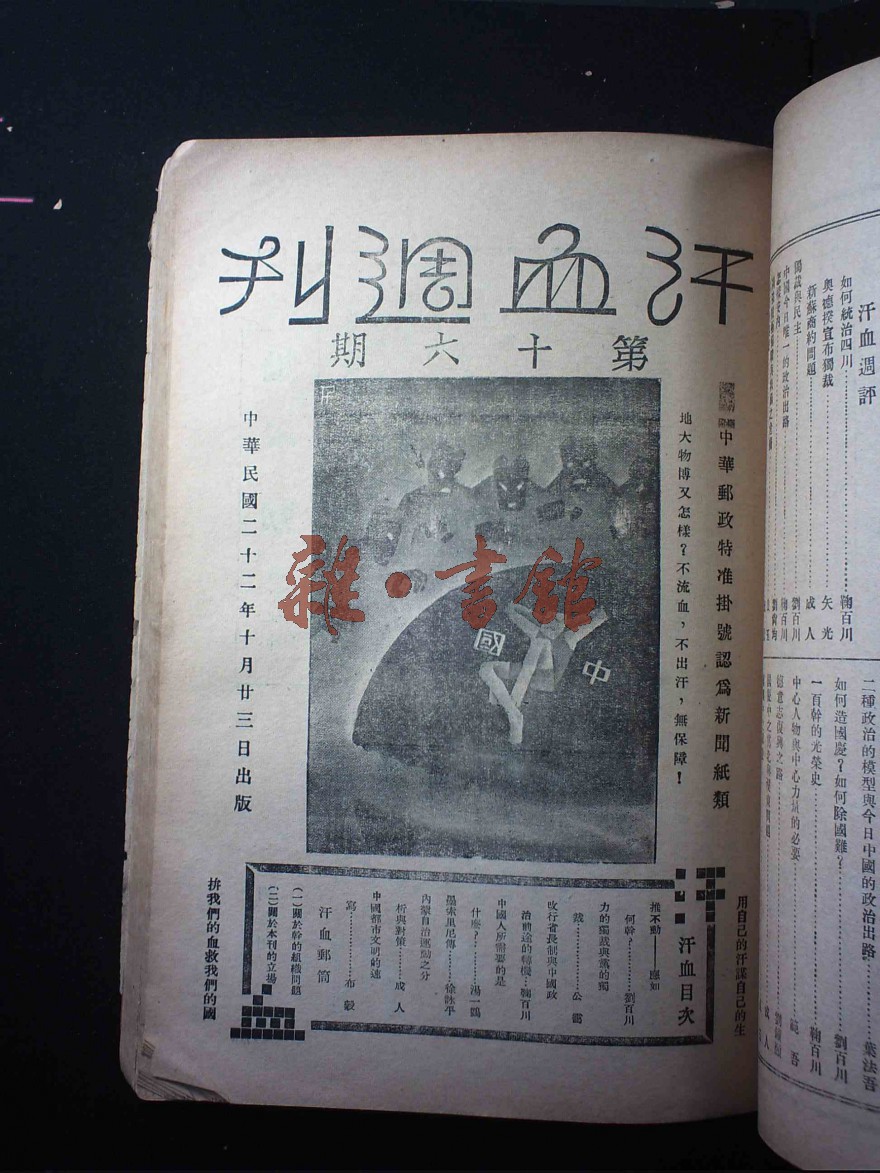 汗血週刊
第十六期
中華郵政特准掛號認爲新聞紙類
地大物博又怎樣？不流血，不出汗，無保障！
中國
雜·書館
中華民國二十二年十月廿三日出版
用自己的汗謀自己的生
汗血目次
推不動——應如
何幹？…………劉百川
力的獨裁與黨的獨
裁…………公
改行省長制與中國政
治前途的轉機…鞠百川
中國人所需要的是
什麼？…………湯一鶚
墨索里尼傳………徐詠平
內蒙自治運動之分
析與對策………成人
中國都市文明的速
寫…………布毅
汗血郵筒
（一）關於幹的組織問題
（二）關於本刊的立場
拚我們的血救我們的國
汗血週評
如何統治四川…………鞠百川
奧總揆宣布獨裁…………矢光
新蘇商約問題…………成人
獨裁與民主…………劉百川
中國今日唯一的政治出路…………鞠百川
二種政治的模型與今日中國的政治出路…………葉法吾
如何造國慶？如何除國難？…………劉百川
一百幹的光榮史…………鞠百川
中心人物與中心力量的必要…………范吾